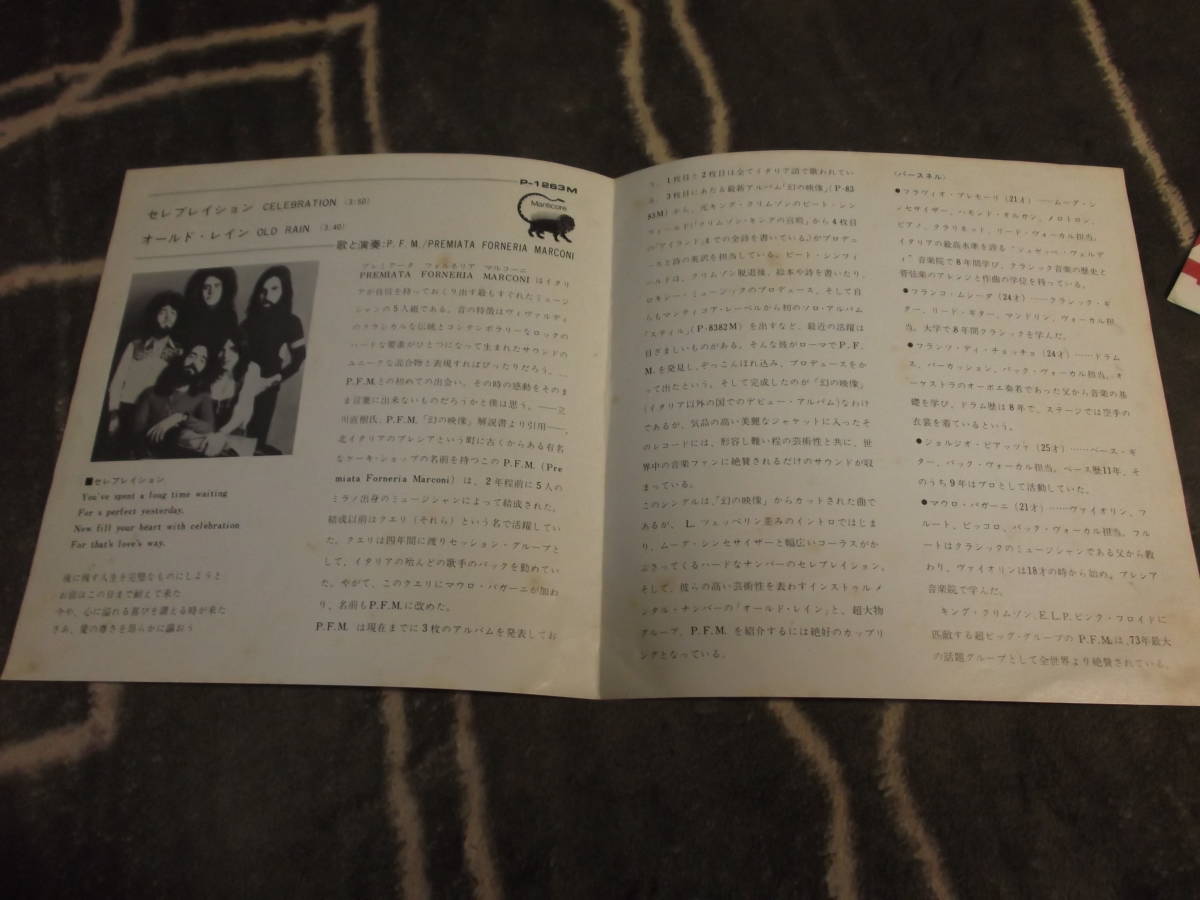 P-1263M
Manticore
セレブレイション CELEBRATION (3:50)
オールド・レイン OLD RAIN (3.40)
歌と演奏:P.F.M./PREMIATA FORNERIA MARCONI
プレミアータ フォルネリア マルコーニ
PREMIATA FORNERIA MARCONI はイタリ
アが自信を持っておくり出す最もすぐれたミュージ
シャンの5人組である。音の特徴はヴィヴァルディ
のクラシカルな伝統とコンテンポラリーなロックの
ハードな要素がひとつになって生まれたサウンドの
ユニークな混合物と表現すればぴったりだろう。…
P.F.M.との初めての出会い、その時の感動をそのま
ま言葉に出来ないものだろうかと僕は思う。——立
川直樹氏、P.F.M.「幻の映像」解説書より引用——。
北イタリアのブレシアという町に古くからある有名
なケーキ・ショップの名前を持つこのP.F.M.(Pre
miata Forneria Marconi)は、2年程前に5人の
ミラノ出身のミュージシャンによって結成された。
結成以前はクエリ(それら)という名で活躍してい
た。クエリは四年間に渡りセッション・グループと
して、イタリアの殆んどの歌手のバックを勤めてい
た。やがて、このクエリにマウロ・パガーニが加わ
り、名前もP.F.M.に改めた。
P.F.M. は現在までに3枚のアルバムを発表してお
■セレブレイション
You've spent a long time waiting
For a perfect yesterday,
Now fill your heart with celebration
For that's love's way.
後に残す人生を完璧なものにしようと
お前はこの日まで耐えて来た
今や、心に溢れる喜びを讃える時が来た
さあ、愛の尊さを朗らかに謳おう
り、1枚目と2枚目は全てイタリア語で歌われてい
る。3枚目にあたる最新アルバム「幻の映像」(P-83
83M)から、元キング・クリムゾンのピート・シン
フィールド(「クリムゾン・キングの宮殿」から4枚目
の「アイランド」までの全詩を書いている。)がプロデュ
ースと詩の英訳を担当している。ピート・シンフィ
ールドは、クリムゾン脱退後、絵本や詩を書いたり、
ロキシー・ミュージックのプロデュース、そして自
らもマンティコア・レーベルから初のソロ・アルバム
「スティル」(P-8382M)を出すなど、最近の活躍は
目ざましいものがある。そんな彼がローマでP.F.
M.を発見し、ぞっこんほれ込み、プロデュースをか
って出たという。そして完成したのが「幻の映像」
(イタリア以外の国でのデビュー・アルバム)なわけ
であるが、気品の高い美麗なジャケットに入ったそ
のレコードには、形容し難い程の芸術性と共に、世
界中の音楽ファンに絶賛されるだけのサウンドが収
まっている。
このシングルは、「幻の映像」からカットされた曲で
あるが、L.ツェッペリン並みのイントロではじま
り、ムーグ・シンセサイザーと幅広いコーラスがか
ぶさってくるハードなナンバーのセレブレイション。
そして、彼らの高い芸術性を表わすインストゥルメ
ンタル・ナンバーの「オールド・レイン」と、超大物
グループ、P.F.M.を紹介するには絶好のカップリ
ングとなっている。
〈パースネル〉
●フラヴィオ・プレモーリ(21才)——ムーグ・シ
ンセサイザー、ハモンド・オルガン、メロトロン、
ピアノ、クラリネット、リード・ヴォーカル担当。
イタリアの最高水準を誇る「ジュゼッペ・ヴェルデ
ィ」音楽院で8年間学び、クラシック音楽の歴史と
管弦楽のアレンジと作曲の学位を持っている。
●フランコ・ムシーダ(24才)——クラシック・ギ
ター、リード・ギター、マンドリン、ヴォーカル担
当。大学で8年間クラシックを学んだ。
●フランツ・ディ・チョッチョ(24才)……ドラム
ス、パーカッション、バック・ヴォーカル担当。オ
ーケストラのオーボエ奏者であった父から音楽の基
礎を学び、ドラム歴は8年で、ステージでは空手の
衣裳を着ているという。
●ジョルジオ・ピアッツァ(25才)……ベース・ギ
ター、バック・ヴォーカル担当。ベース歴11年、そ
のうち9年はプロとして活動していた。
●マウロ・パガーニ(21才)……ヴァイオリン、フ
ルート、ピッコロ、バック・ヴォーカル担当。フル
ートはクラシックのミュージシャンである父から教
わり、ヴァイオリンは18才の時から始め、ブレシア
音楽院で学んだ。
キング・クリムゾン、E.L.P.ピンク・フロイドに
匹敵する超ビッグ・グループのP.F.M.は、'73年最大
の話題グループとして全世界より絶賛されている。